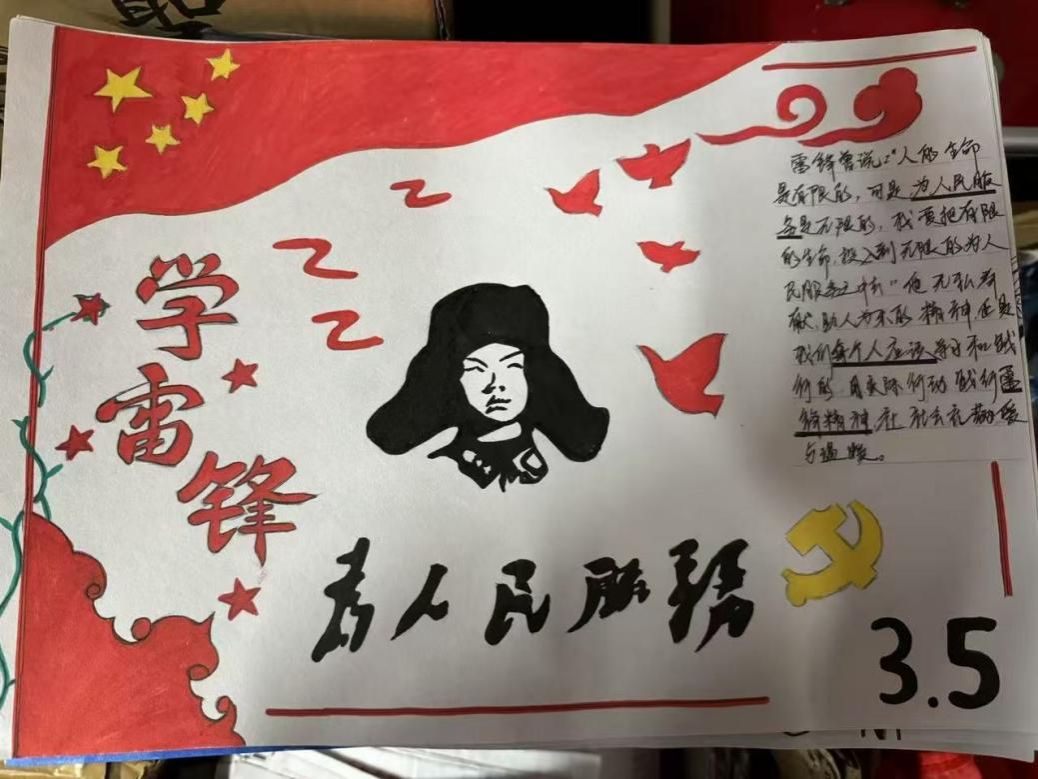 学
雷
锋
雷锋曾说："人的生命
是有限的，可是为人民服
务是无限的，我要把有限
的生命，投入到无限的为人
民服务之中去"他无私奉
献、助人为乐的精神正是
我们每个人应该学习和践
行的，用实际行动践行雷
锋精神，让社会充满爱
与温暖。
为人民服務
3.5